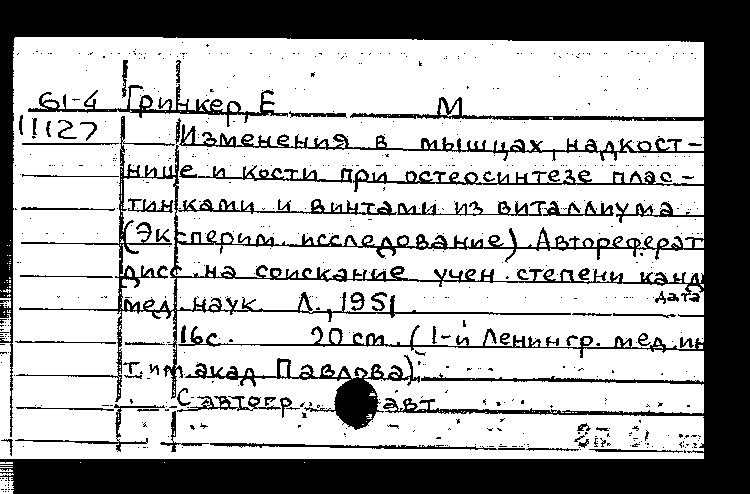 61-4 Гринкер, Е М
11127 Изменения в мышцах, надкост-
нице и кости при остеосинтезе плас-
тинками и винтами из виталлиума.
(Эксперим. исследование). Автореферат
дисс. на соискание учен. степени канд
дата
мед. наук. Л., 1951.
16с. 20 cm. (1-й Ленингр. мед. ин
т им. акад. Павлова).
С автогр. авт